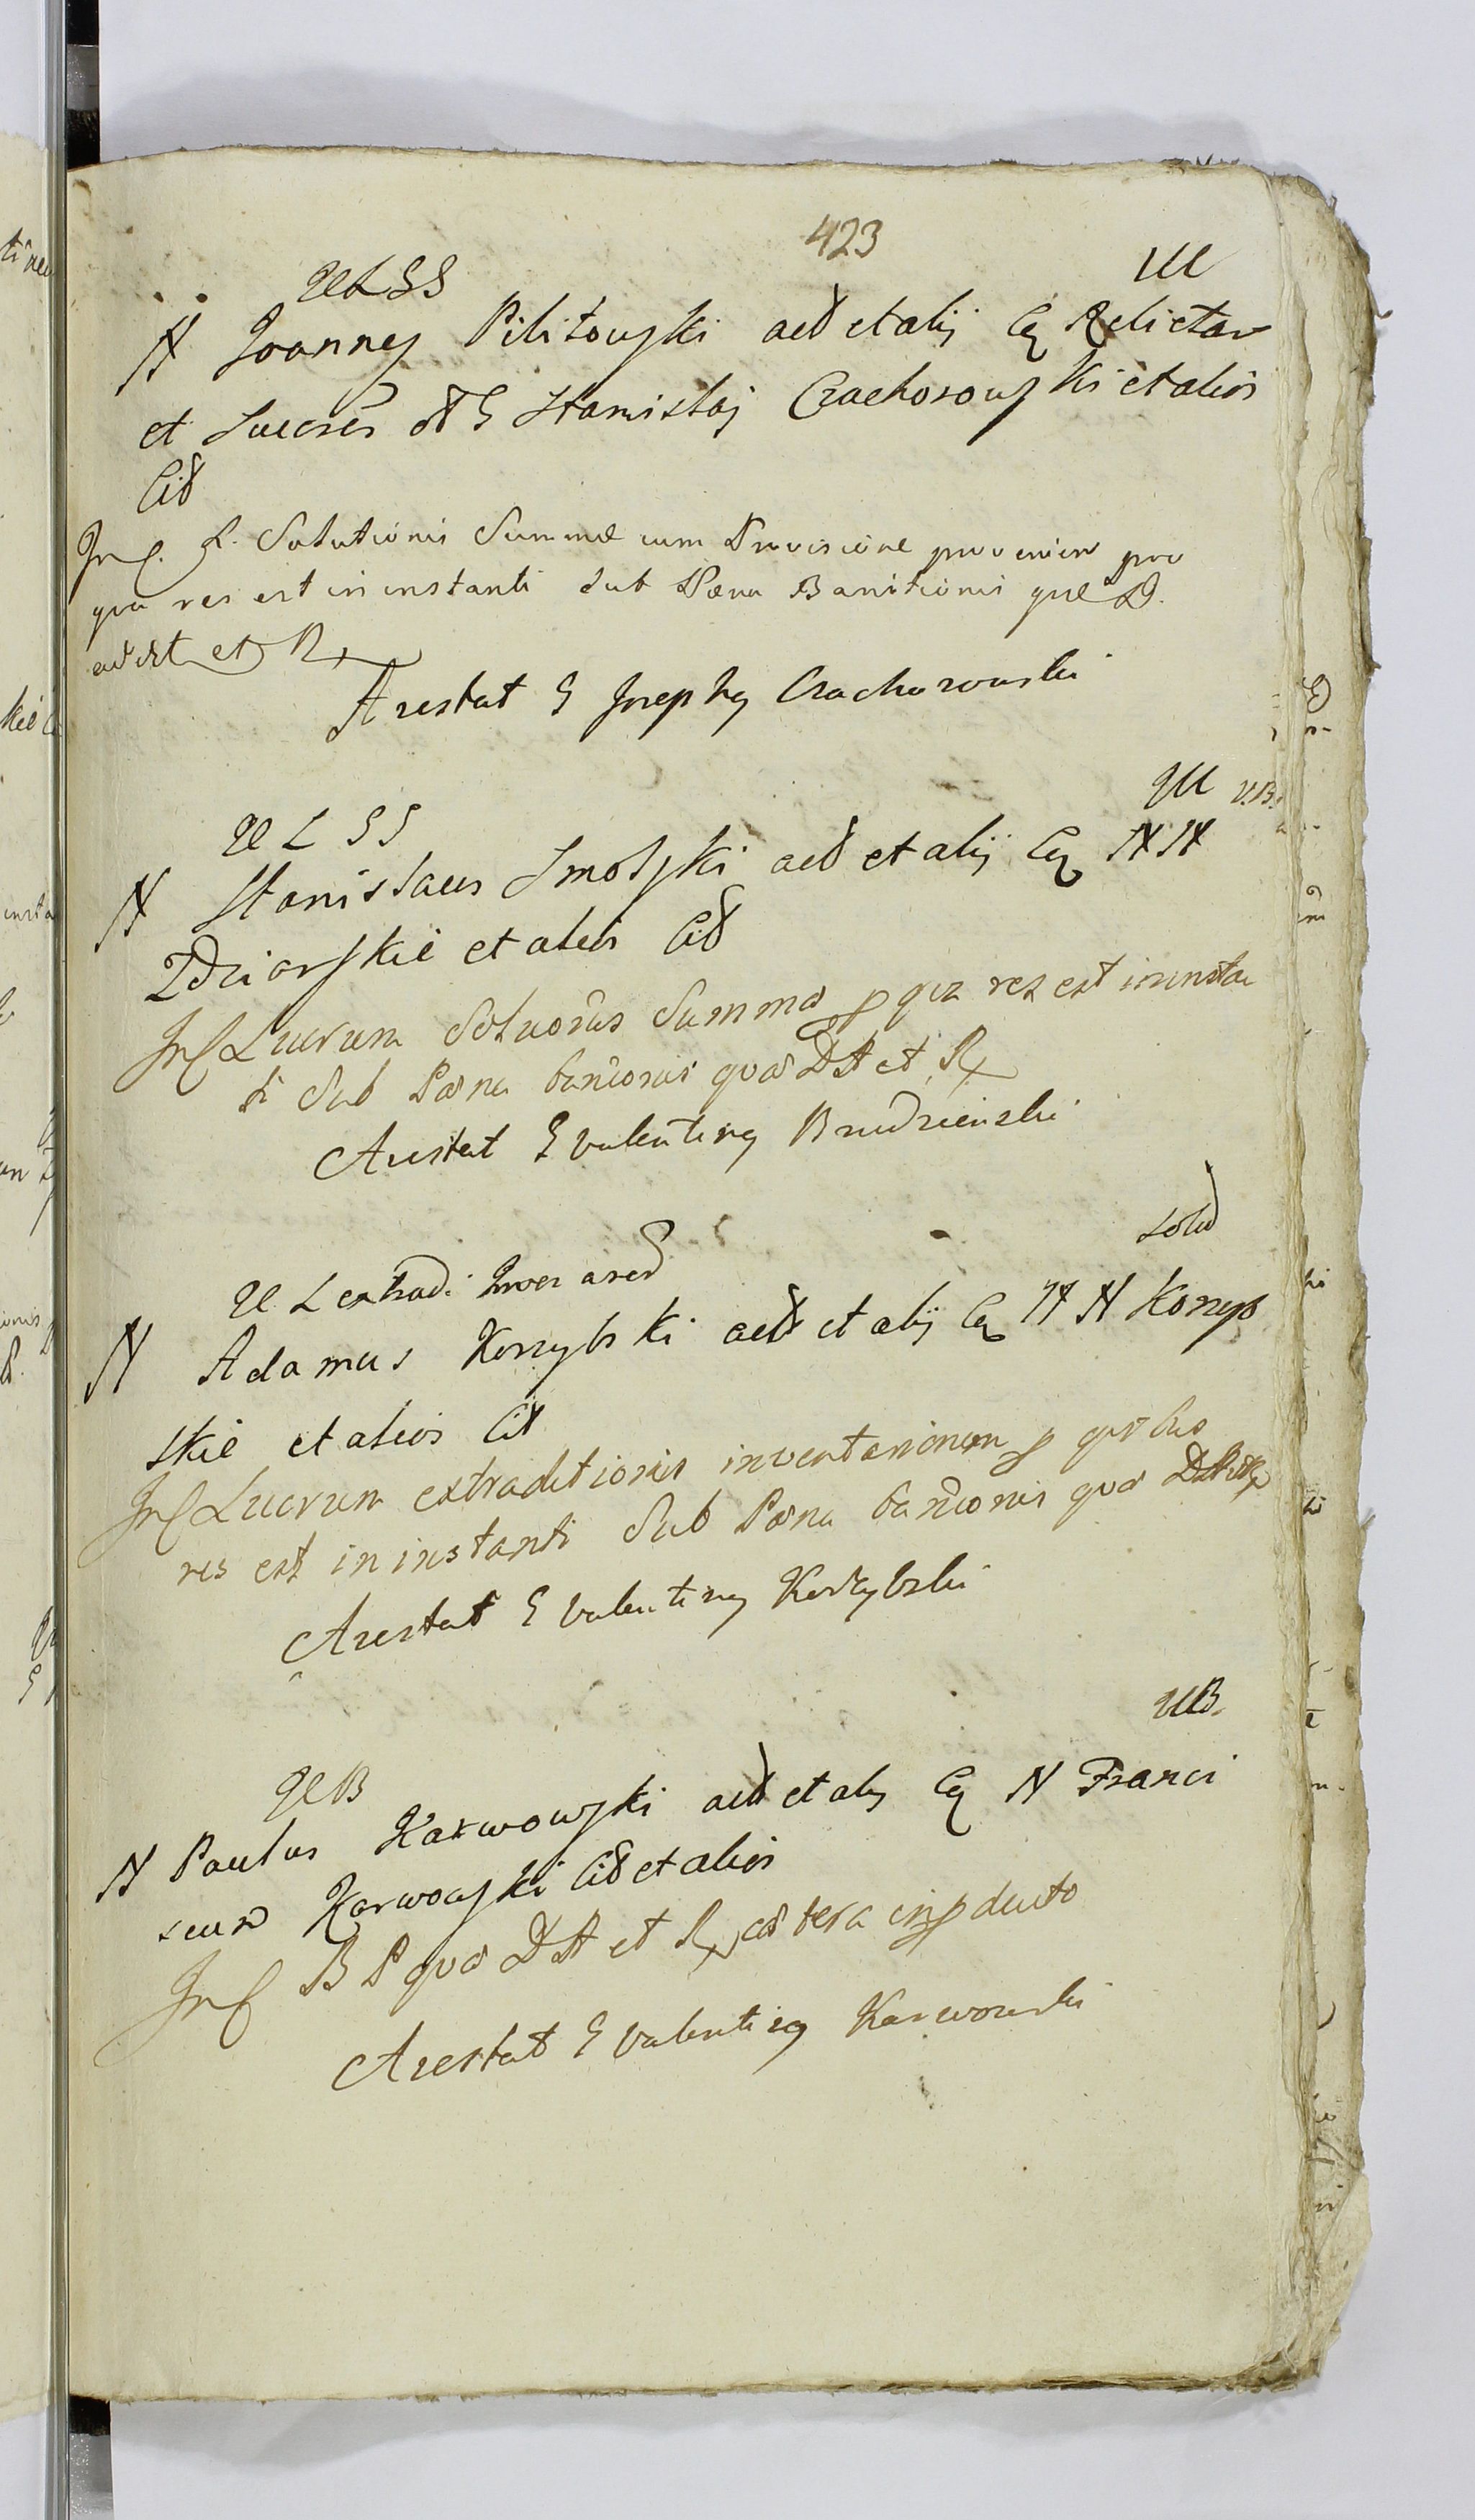 423
N Joannes Pilitowski act et alij Cq Relictam
et Succres N G Stanislaj Czachorowski et alios
Cit
Inf. L. Solutionis Summæ cum Provisione provenien pro
qua res est in instanti sub Pæna Banitionis quæ D.
adest et R
Arestat G Josephq Czachorowski
V.B.
N Stanislaus Smolski act et alij Cq N N
Zdziarskie et alios Cit
Inf Lucrum Soluonis Summæ p qua res est in insta
ti Sub Pæna banionis quæ D A et R
Arestat G Valentinq Brudzienski
Solut
N Adamus Korzybski act et alij Cq N N Korzyb
skie et alios Cit
Inf Lucrum extraditionis inventariorum p quibus
res est in instanti Sub Pæna banionis quæ D A et R
Arestat G Valentinq Korzybski
N Paulus Karwowski act et alij Cq N Franci
scum Karwowski Cit et alios
Inf B P quæ D A et R cætera in pducto
Arestat G Valentinq Karwowski